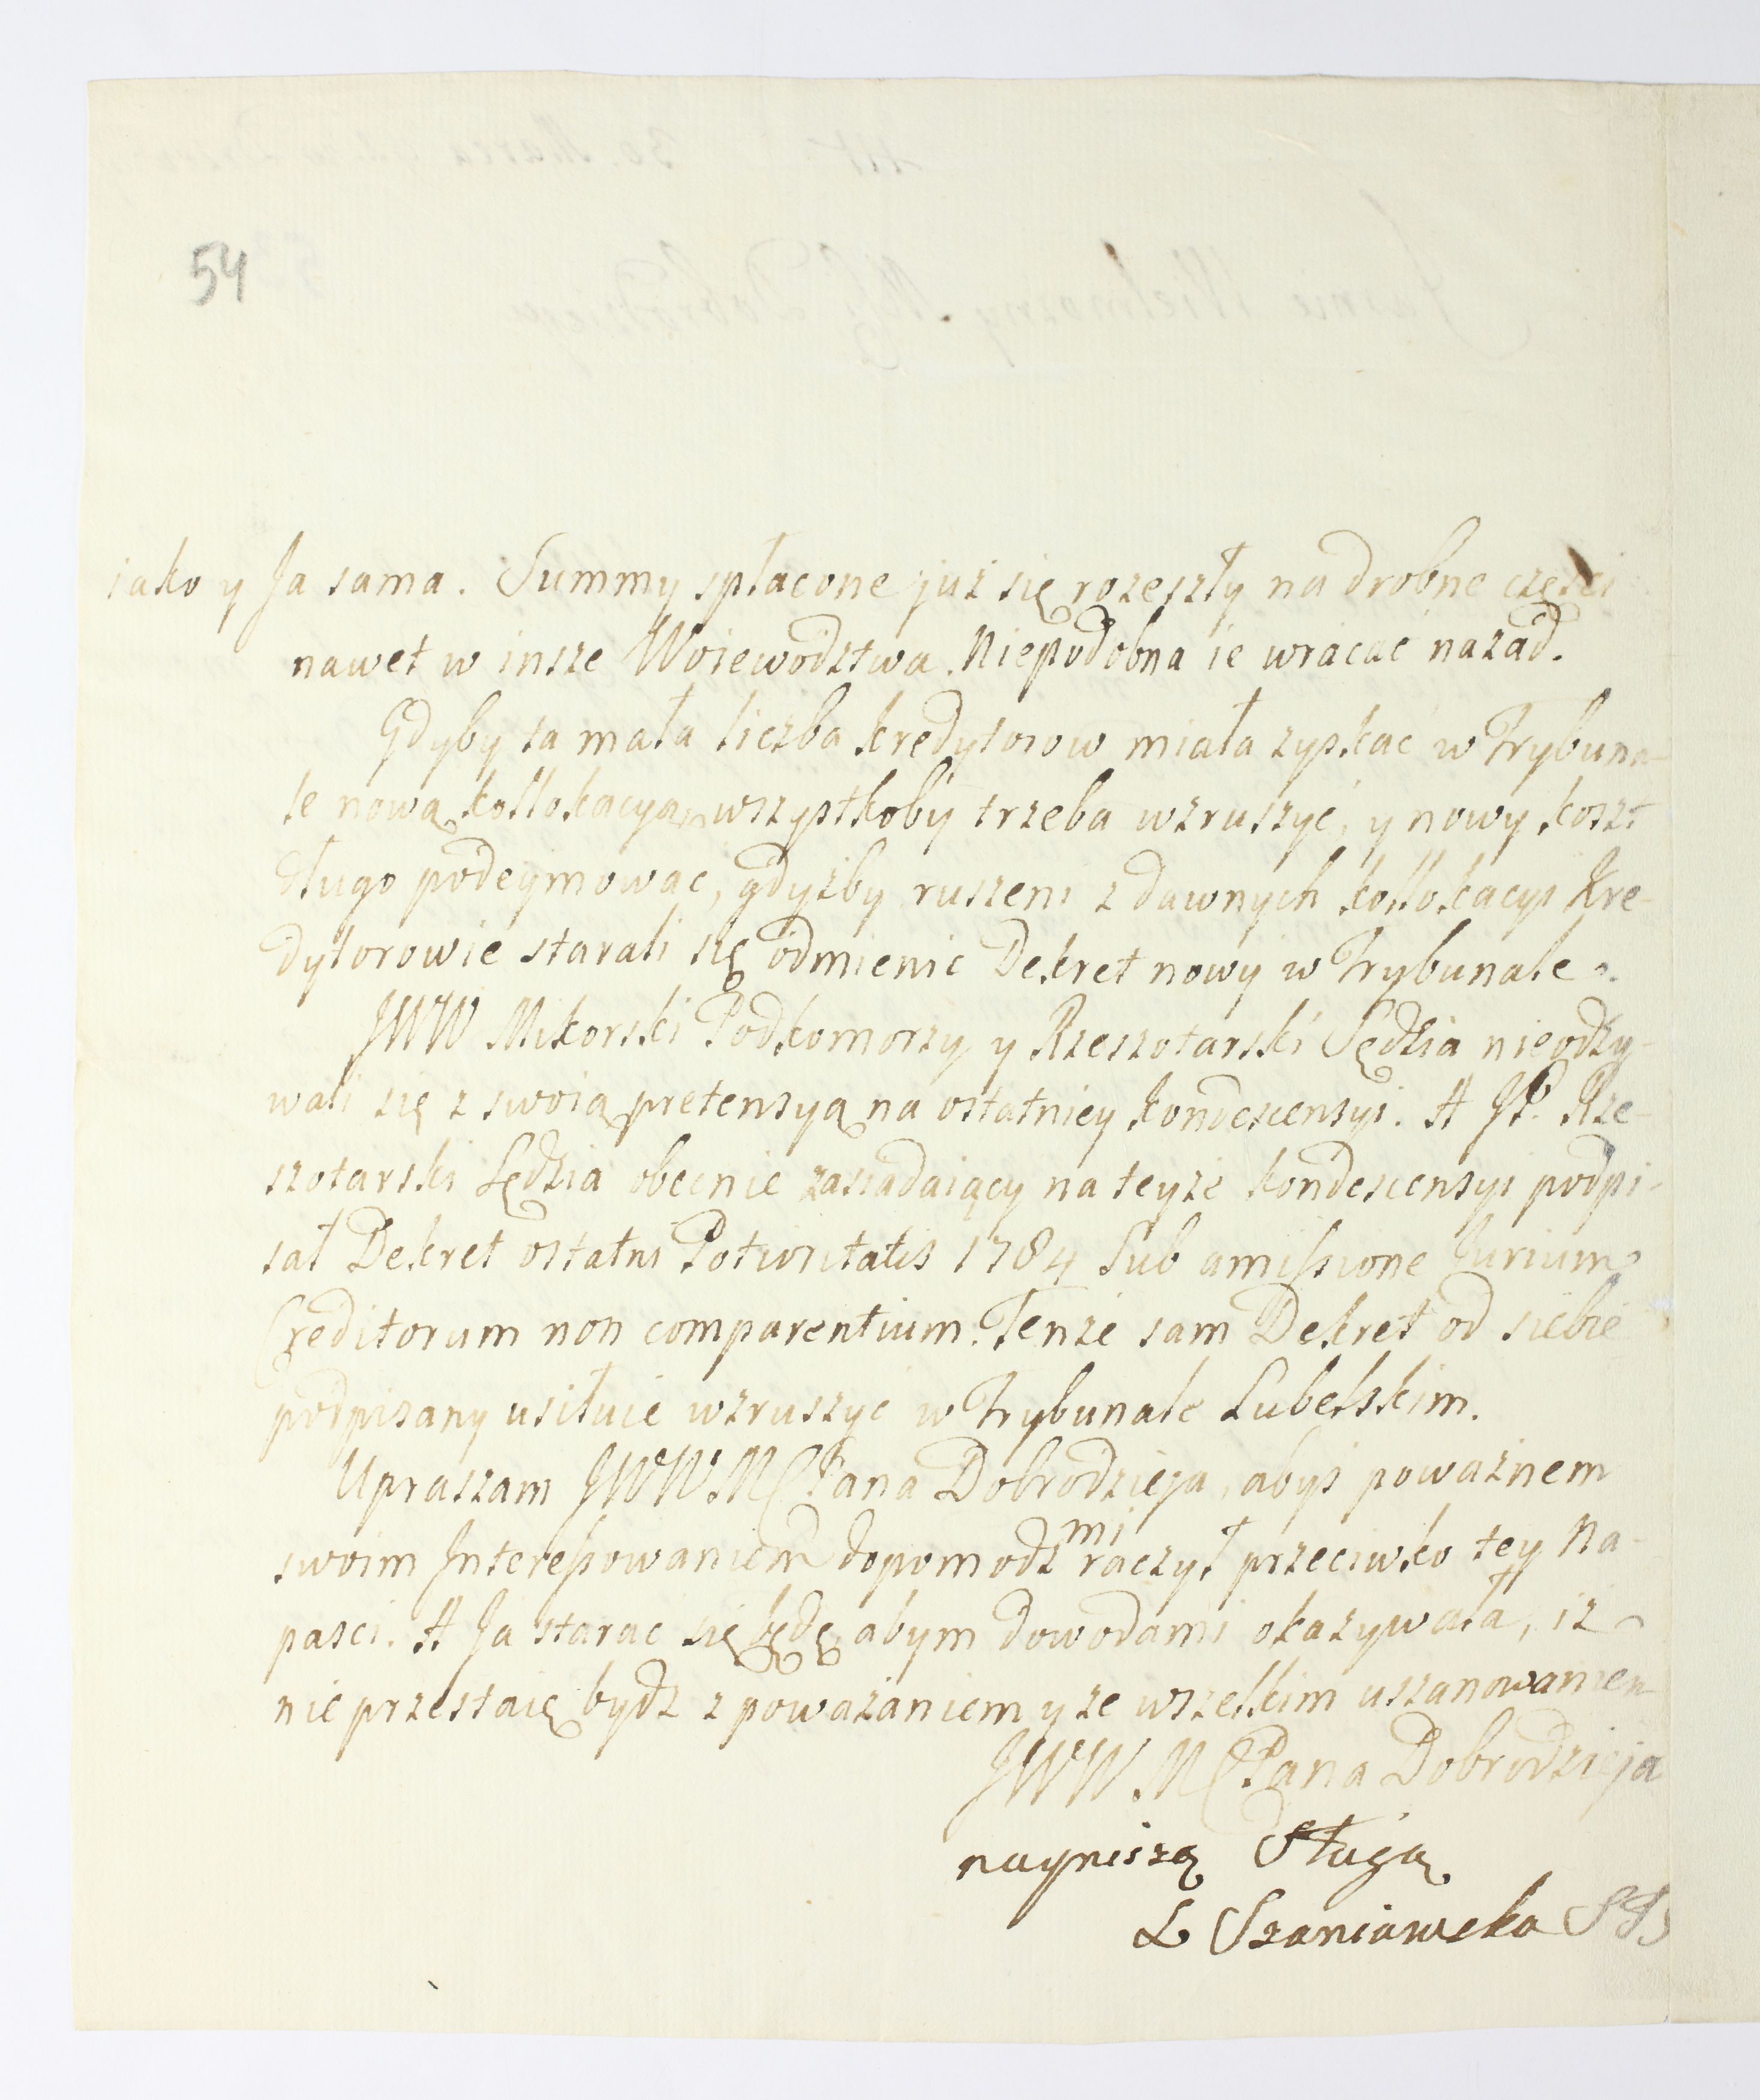 54
iako y Ja sama. Summy spłacone już się rozeszły na drobne części
nawet w insze Woiewodztwa. Niepodobna ie wracać nazad.
Gdyby ta mała liczba kredytorow miała zyskać w Trybuna-
le nową kollokacyą, wszystkoby trzeba wzruszyć, y nowy koszt
długo podeymować, gdyżby ruszeni z dawnych kollokacyi Kre-
dytorowie starali się odmienić Dekret nowy w Trybunale.
JWW Mikorski Podkomorzy y Rzeszotarski Sędzia nieodzy-
wali się z swoią pretensyą na ostatniey kondescensyi. A JP. Rze-
szotarski Sędzia obecnie zasiadaiący na teyże kondescensyi podpi-
sał Dekret ostatni Potioritatis 1784 sub amissione Jurium
Creditorum non comparentium. Tenże sam Dekret od siebie
podpisany usiłuie wzruszyć w Trybunale Lubelskim.
Upraszam JWW. M Pana Dobrodzieja, abyś poważnem
swoim Interessowaniem dopomodz mi raczył przeciwko tey Na-
paści. A Ja starac się będę, abym dowodami okazywała, iż
nie przestaię bydz z poważaniem y ze wszelkim uszanowaniem
JWW. M Pana Dobrodzieja
nayniszą Sługą
L Szaniawska